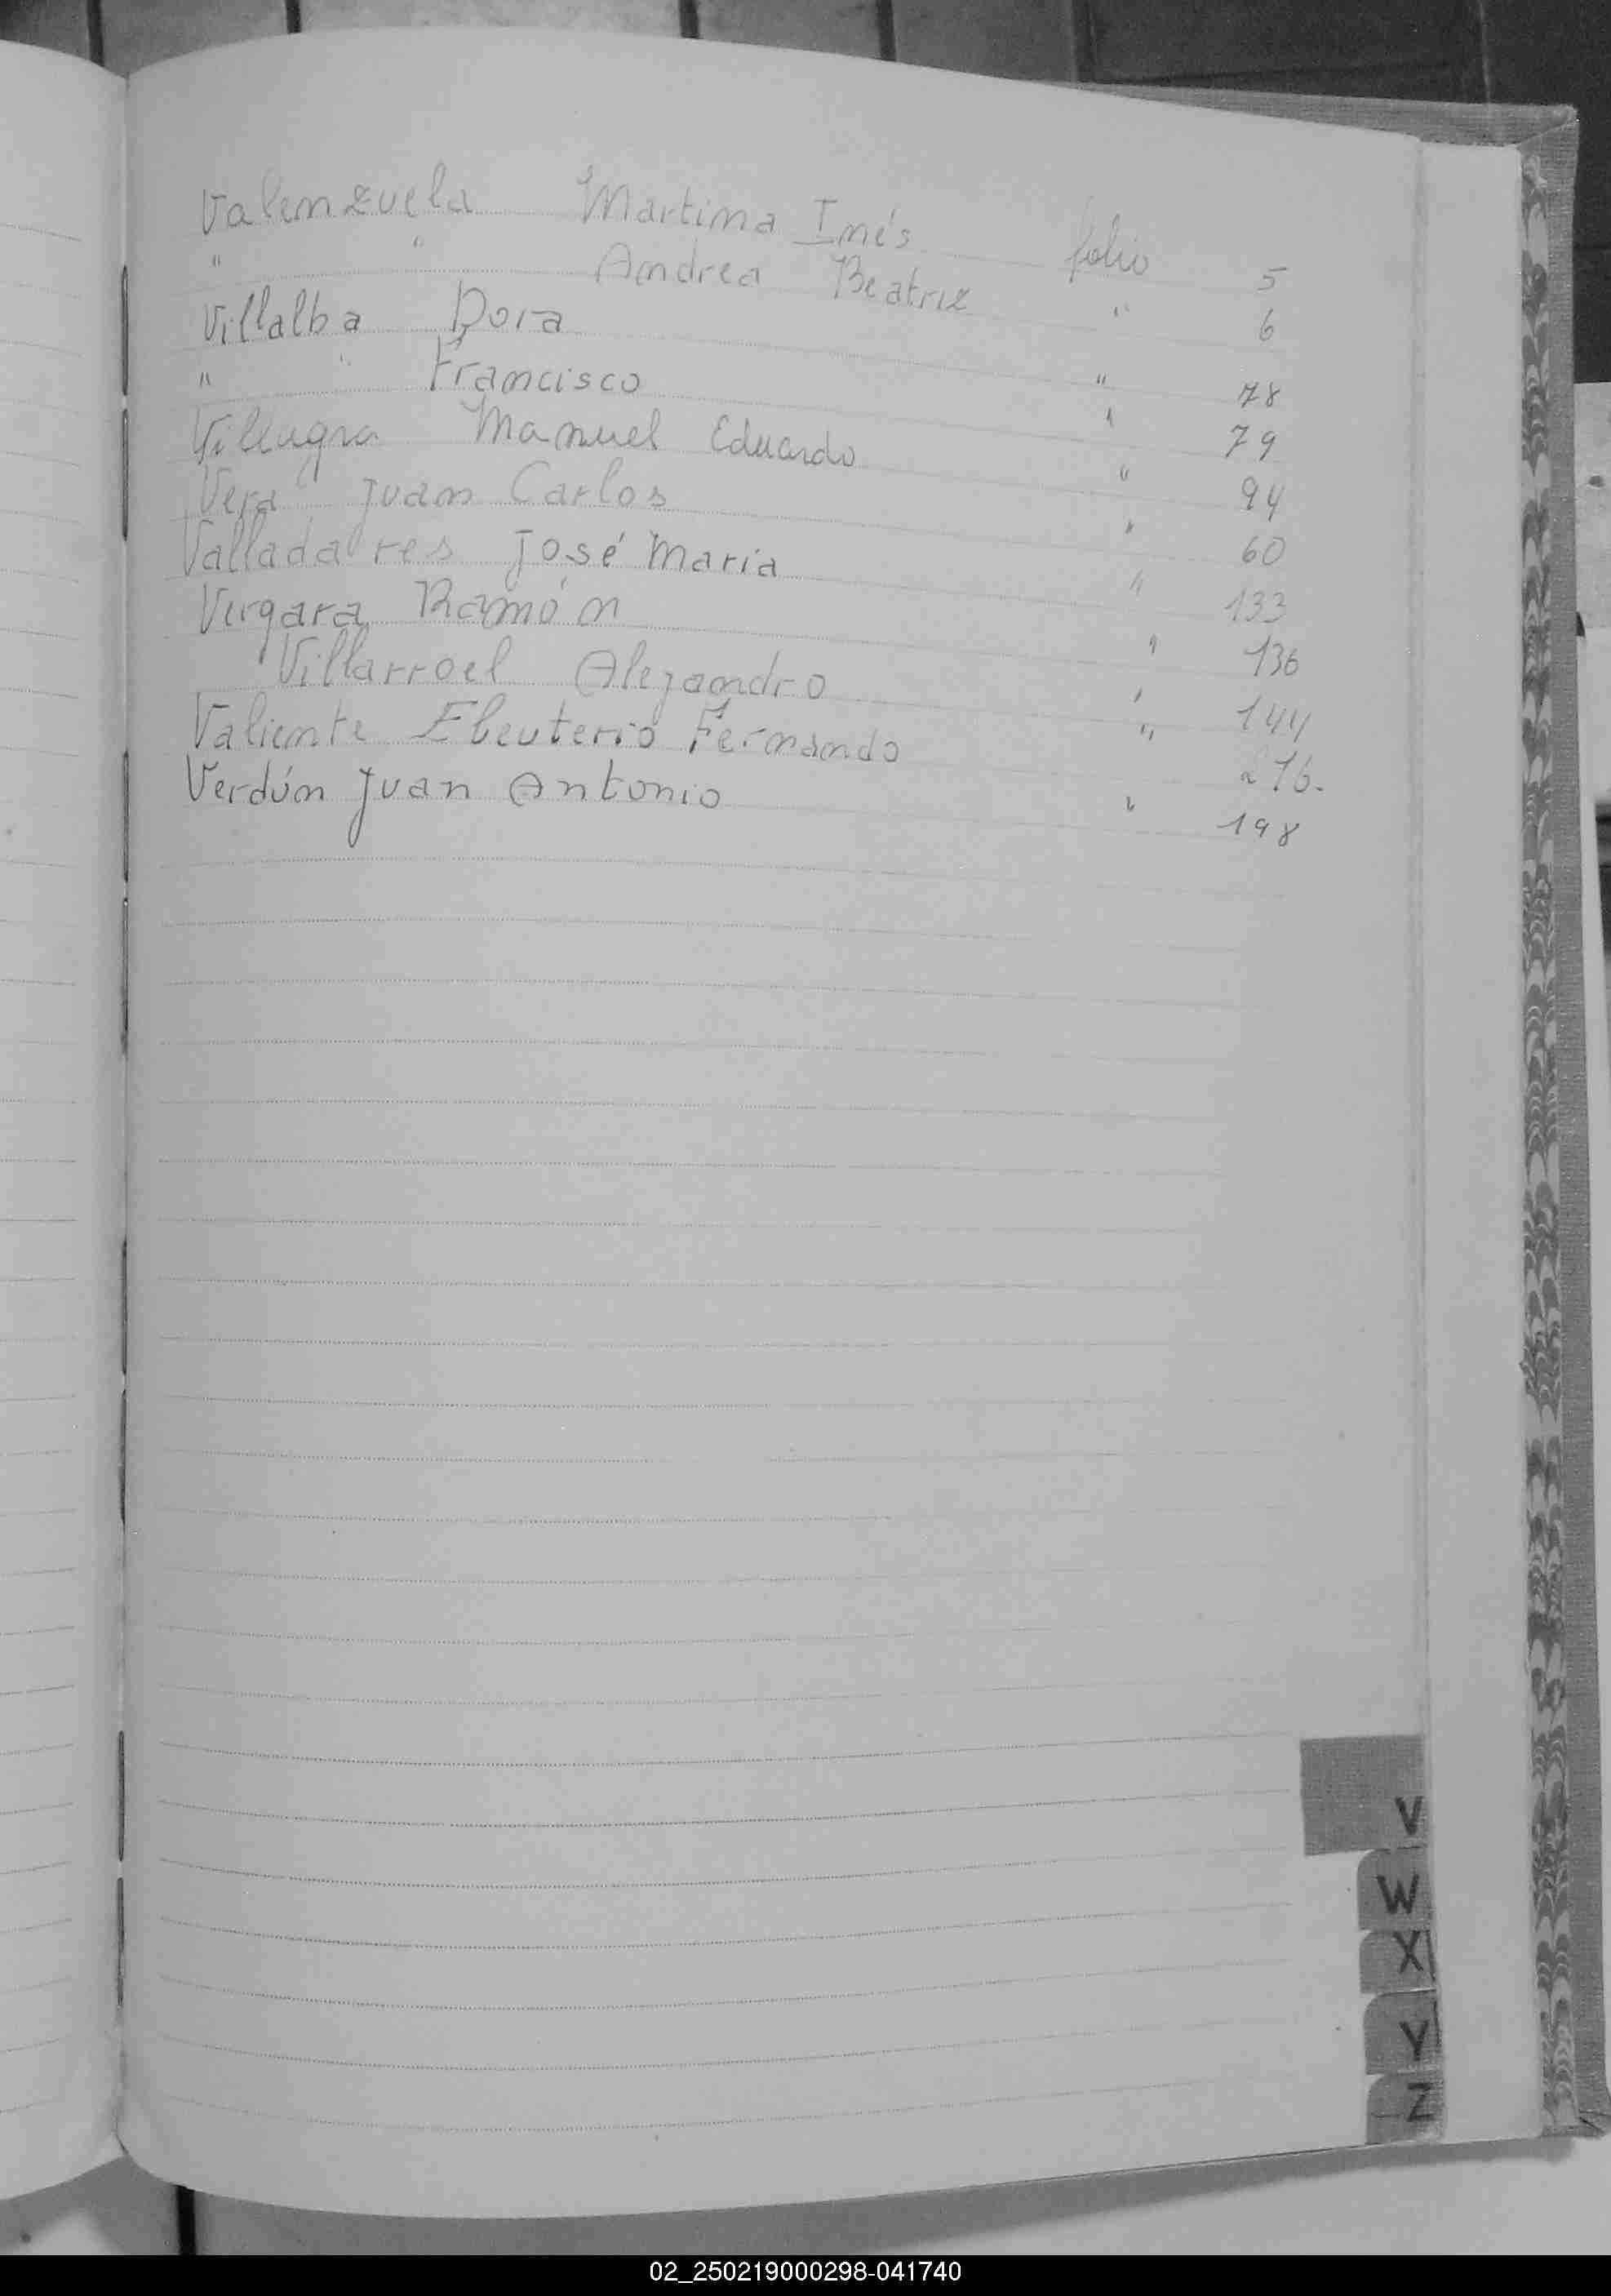 Valenzuela Martina Inés folio 5
" " Andrea Beatriz " 6
Villalba Dora " 78
" " Francisco " 79
Villagra Manuel Eduardo " 94
Vera Juan Carlos " 60
Valladares José Maria " 133
Vergara Ramón " 136
Villarroel Alejandro " 144
Valiente Eleuterio Fernando "
Verdún Juan Antonio " 198
V
W
X
Y
Z
02_250219000298-041740